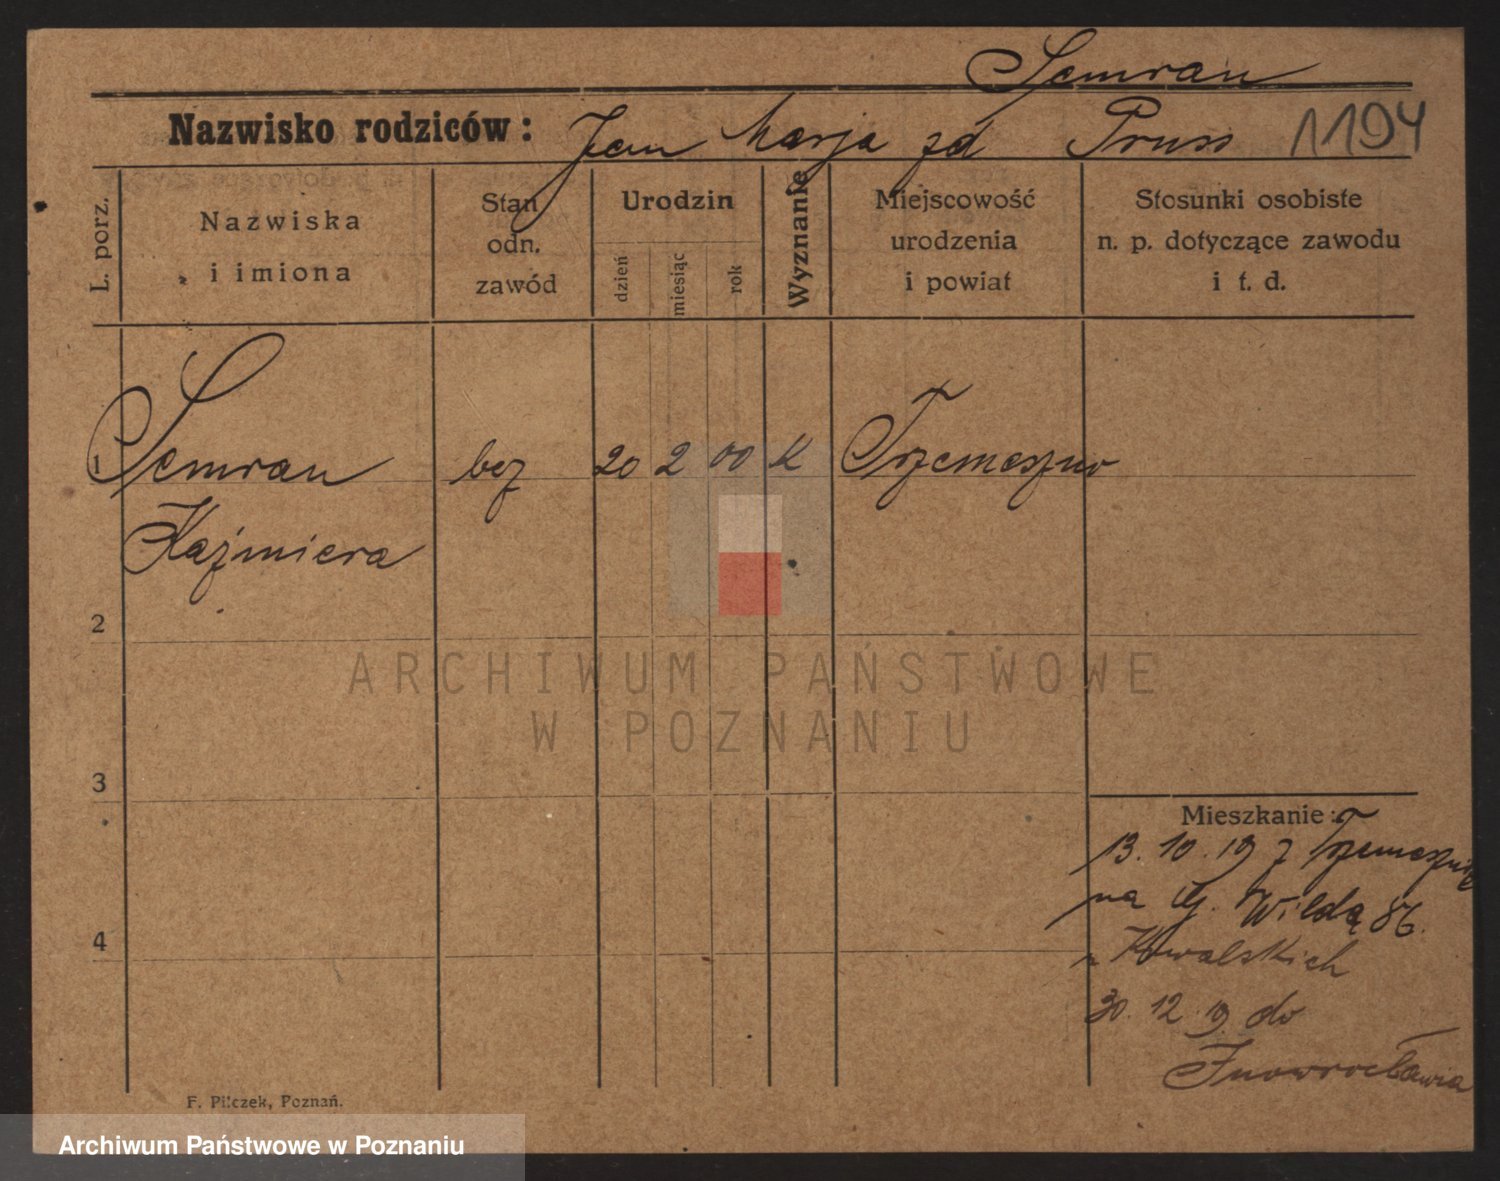 Semrau
Nazwisko rodziców: Jan Marja zd Pruss 1194
L. porz.
Nazwiska
i imiona
Stan
odn.
zawód
Urodzin
dzień
miesiąc
rok
Wyznanie
Miejscowość
urodzenia
i powiat
Stosunki osobiste
n. p. dotyczące zawodu
i t. d.
1 Semrau bez 20 2 00 K Trzemeszno
Kaźmiera
2
3
4
Mieszkanie:
13. 10. 19 z Trzemeszna
na G. Wildą 86.
u Kowalskich
30. 12. 19 do
Inowrocławia
F. Pilczek, Poznań.
ARCHIWUM PAŃSTWOWE
W POZNANIU
Archiwum Państwowe w Poznaniu